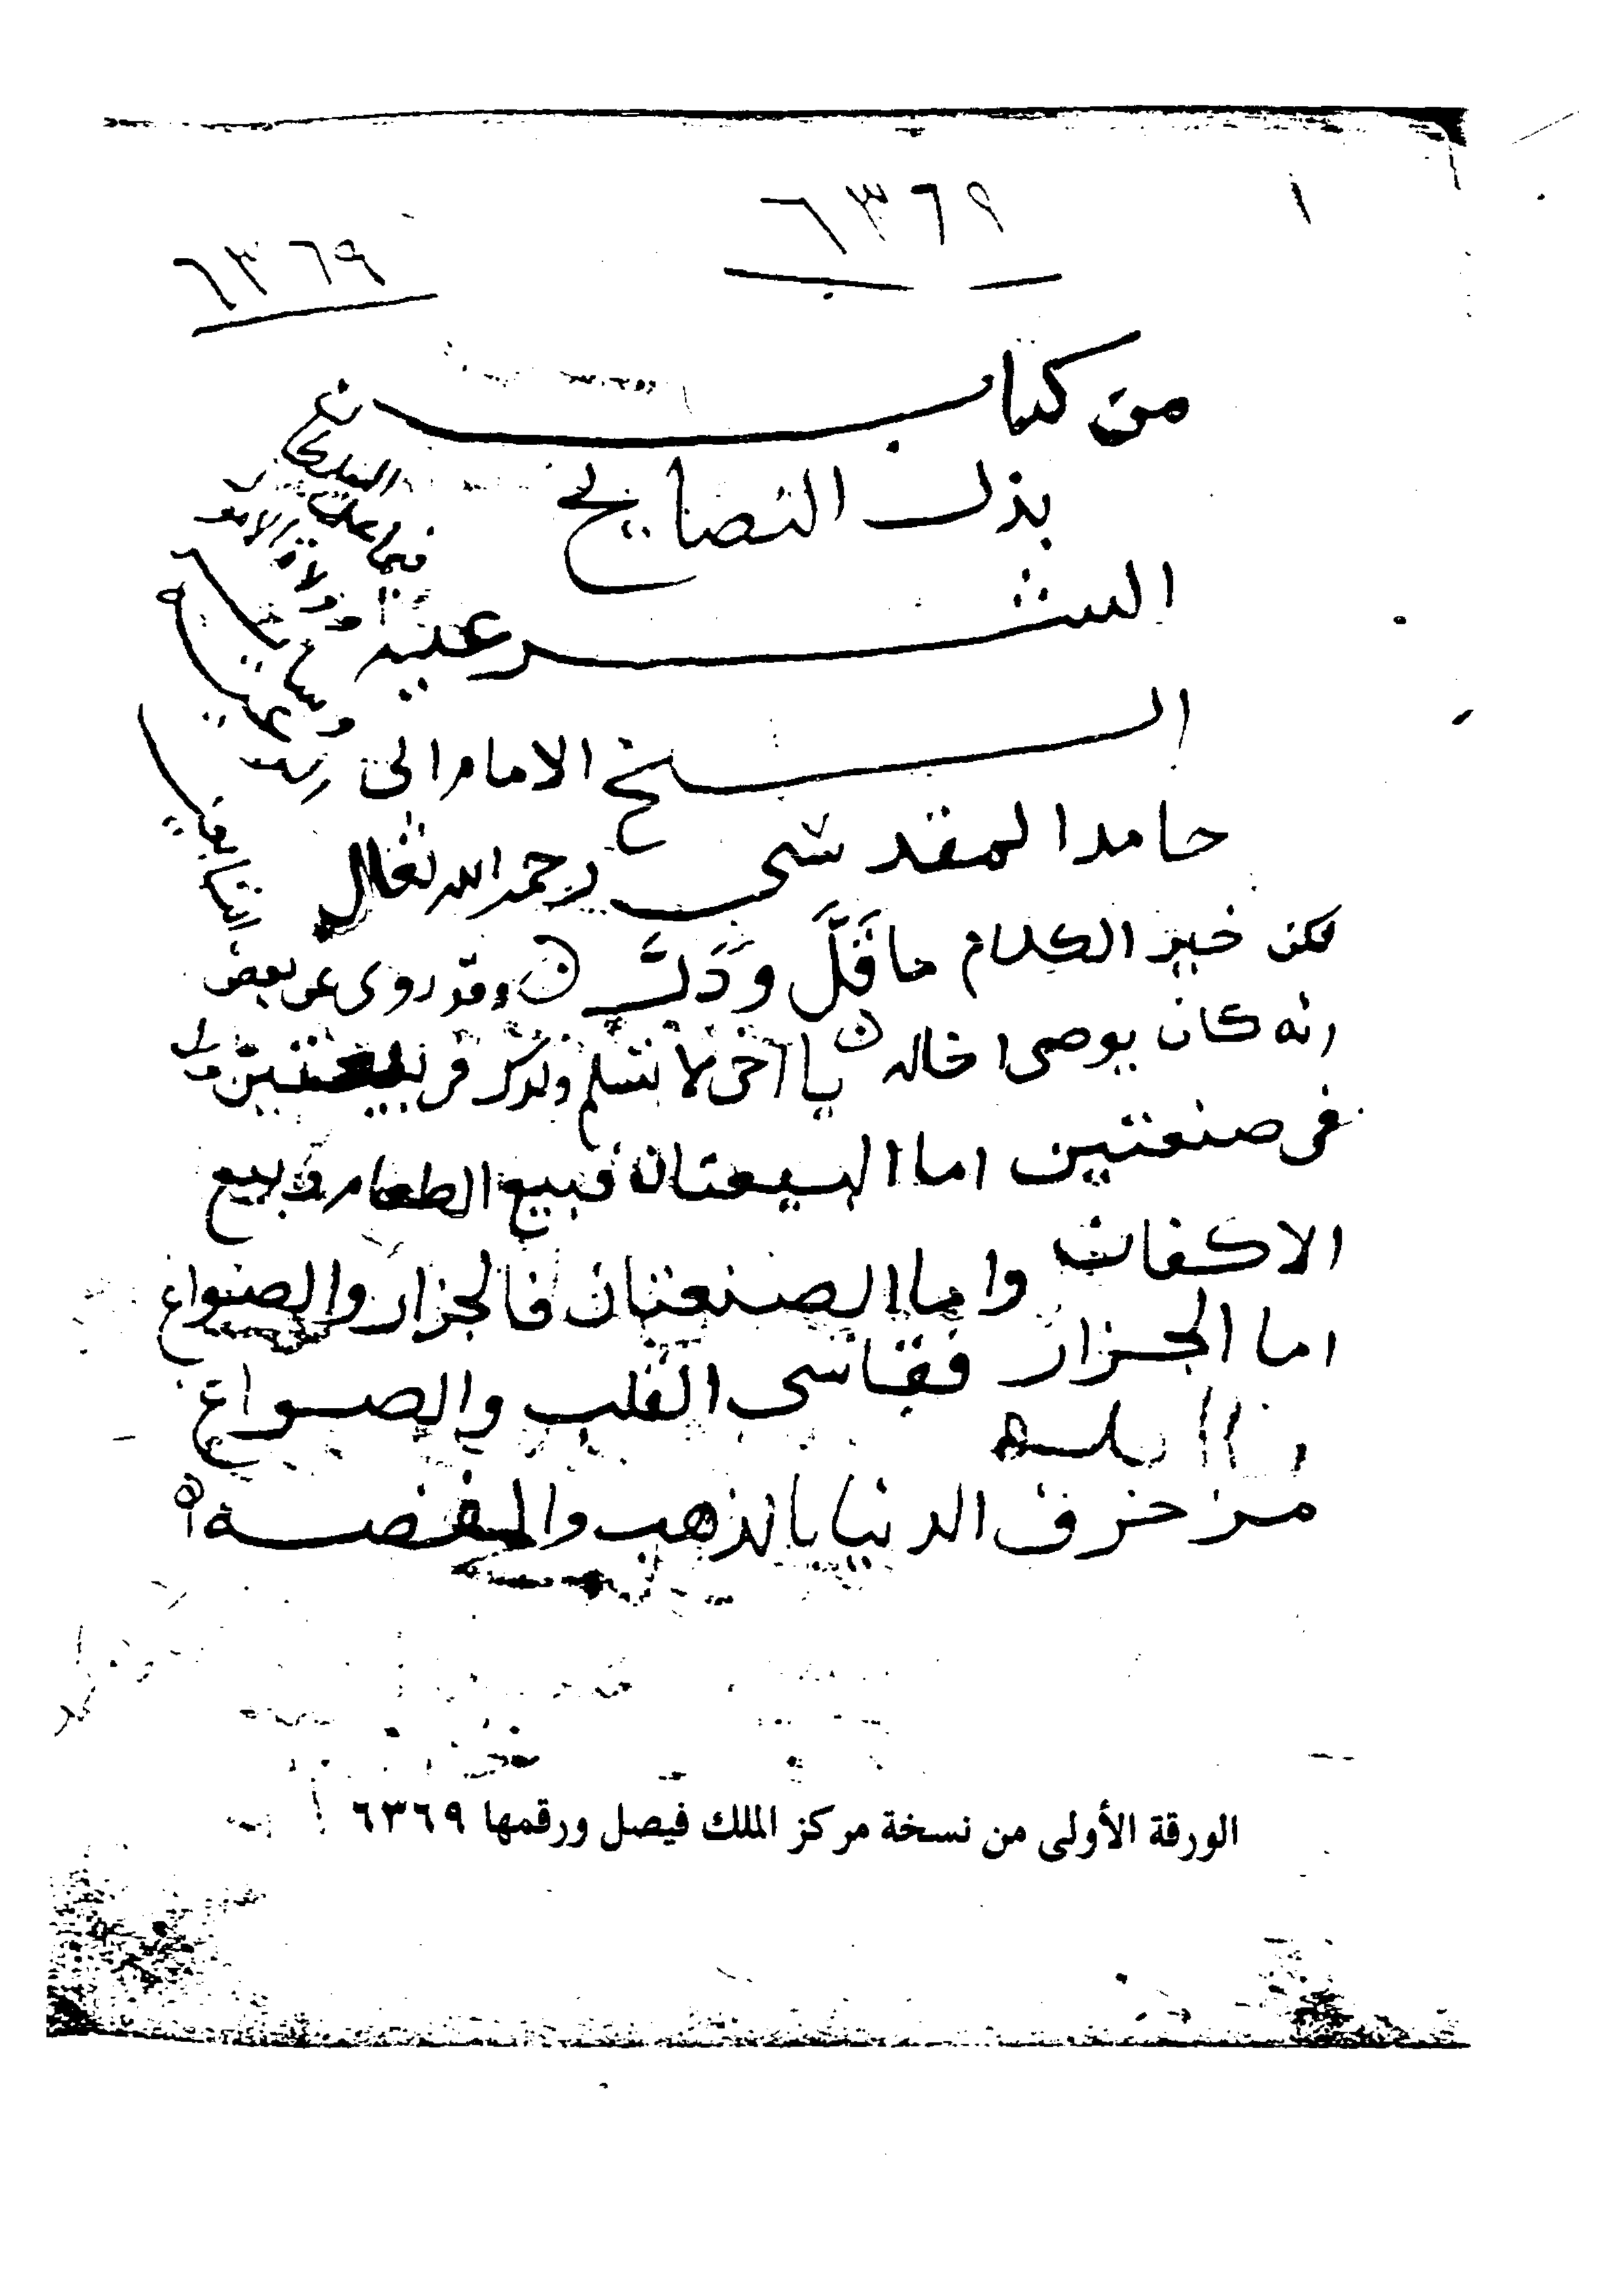 ١
٦٣٦٩
٦٣٦٩
من كتاب
بذل النصايح
الشرعية
الشيخ الامام ابى
حامد المقدسى رحمه الله تعالى
فكن خير الكلام ما قَلَّ وَدَلَّ وقد روى عن بعض
انه كان يوصى اخاله يا اخى لا تسلم ولدك فى بيعتين ولا
فى صنعتين اما البيعتان فبيع الطعام وبيع
الاكفان واما الصنعتان فالجزار والصواغ
اما الجزار فقاسى القلب والصواغ
مزخرف الدنيا بالذهب والفضة
فيما على
ولاة الامور
الورقة الأولى من نسخة مركز الملك فيصل ورقمها ٦٣٦٩